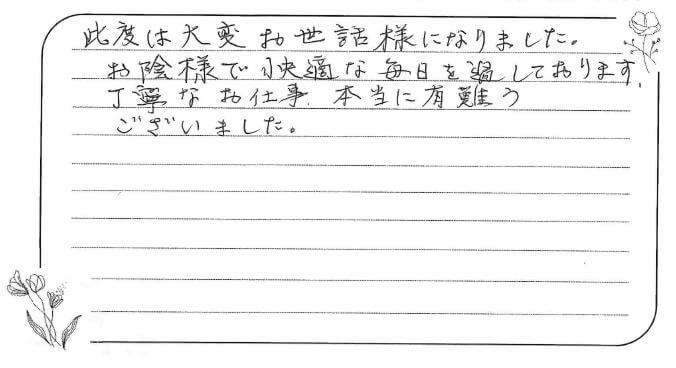 此度は大変お世話様になりました。
お陰様で快適な毎日を過しております、
丁寧なお仕事、本当に有難う
ございました。